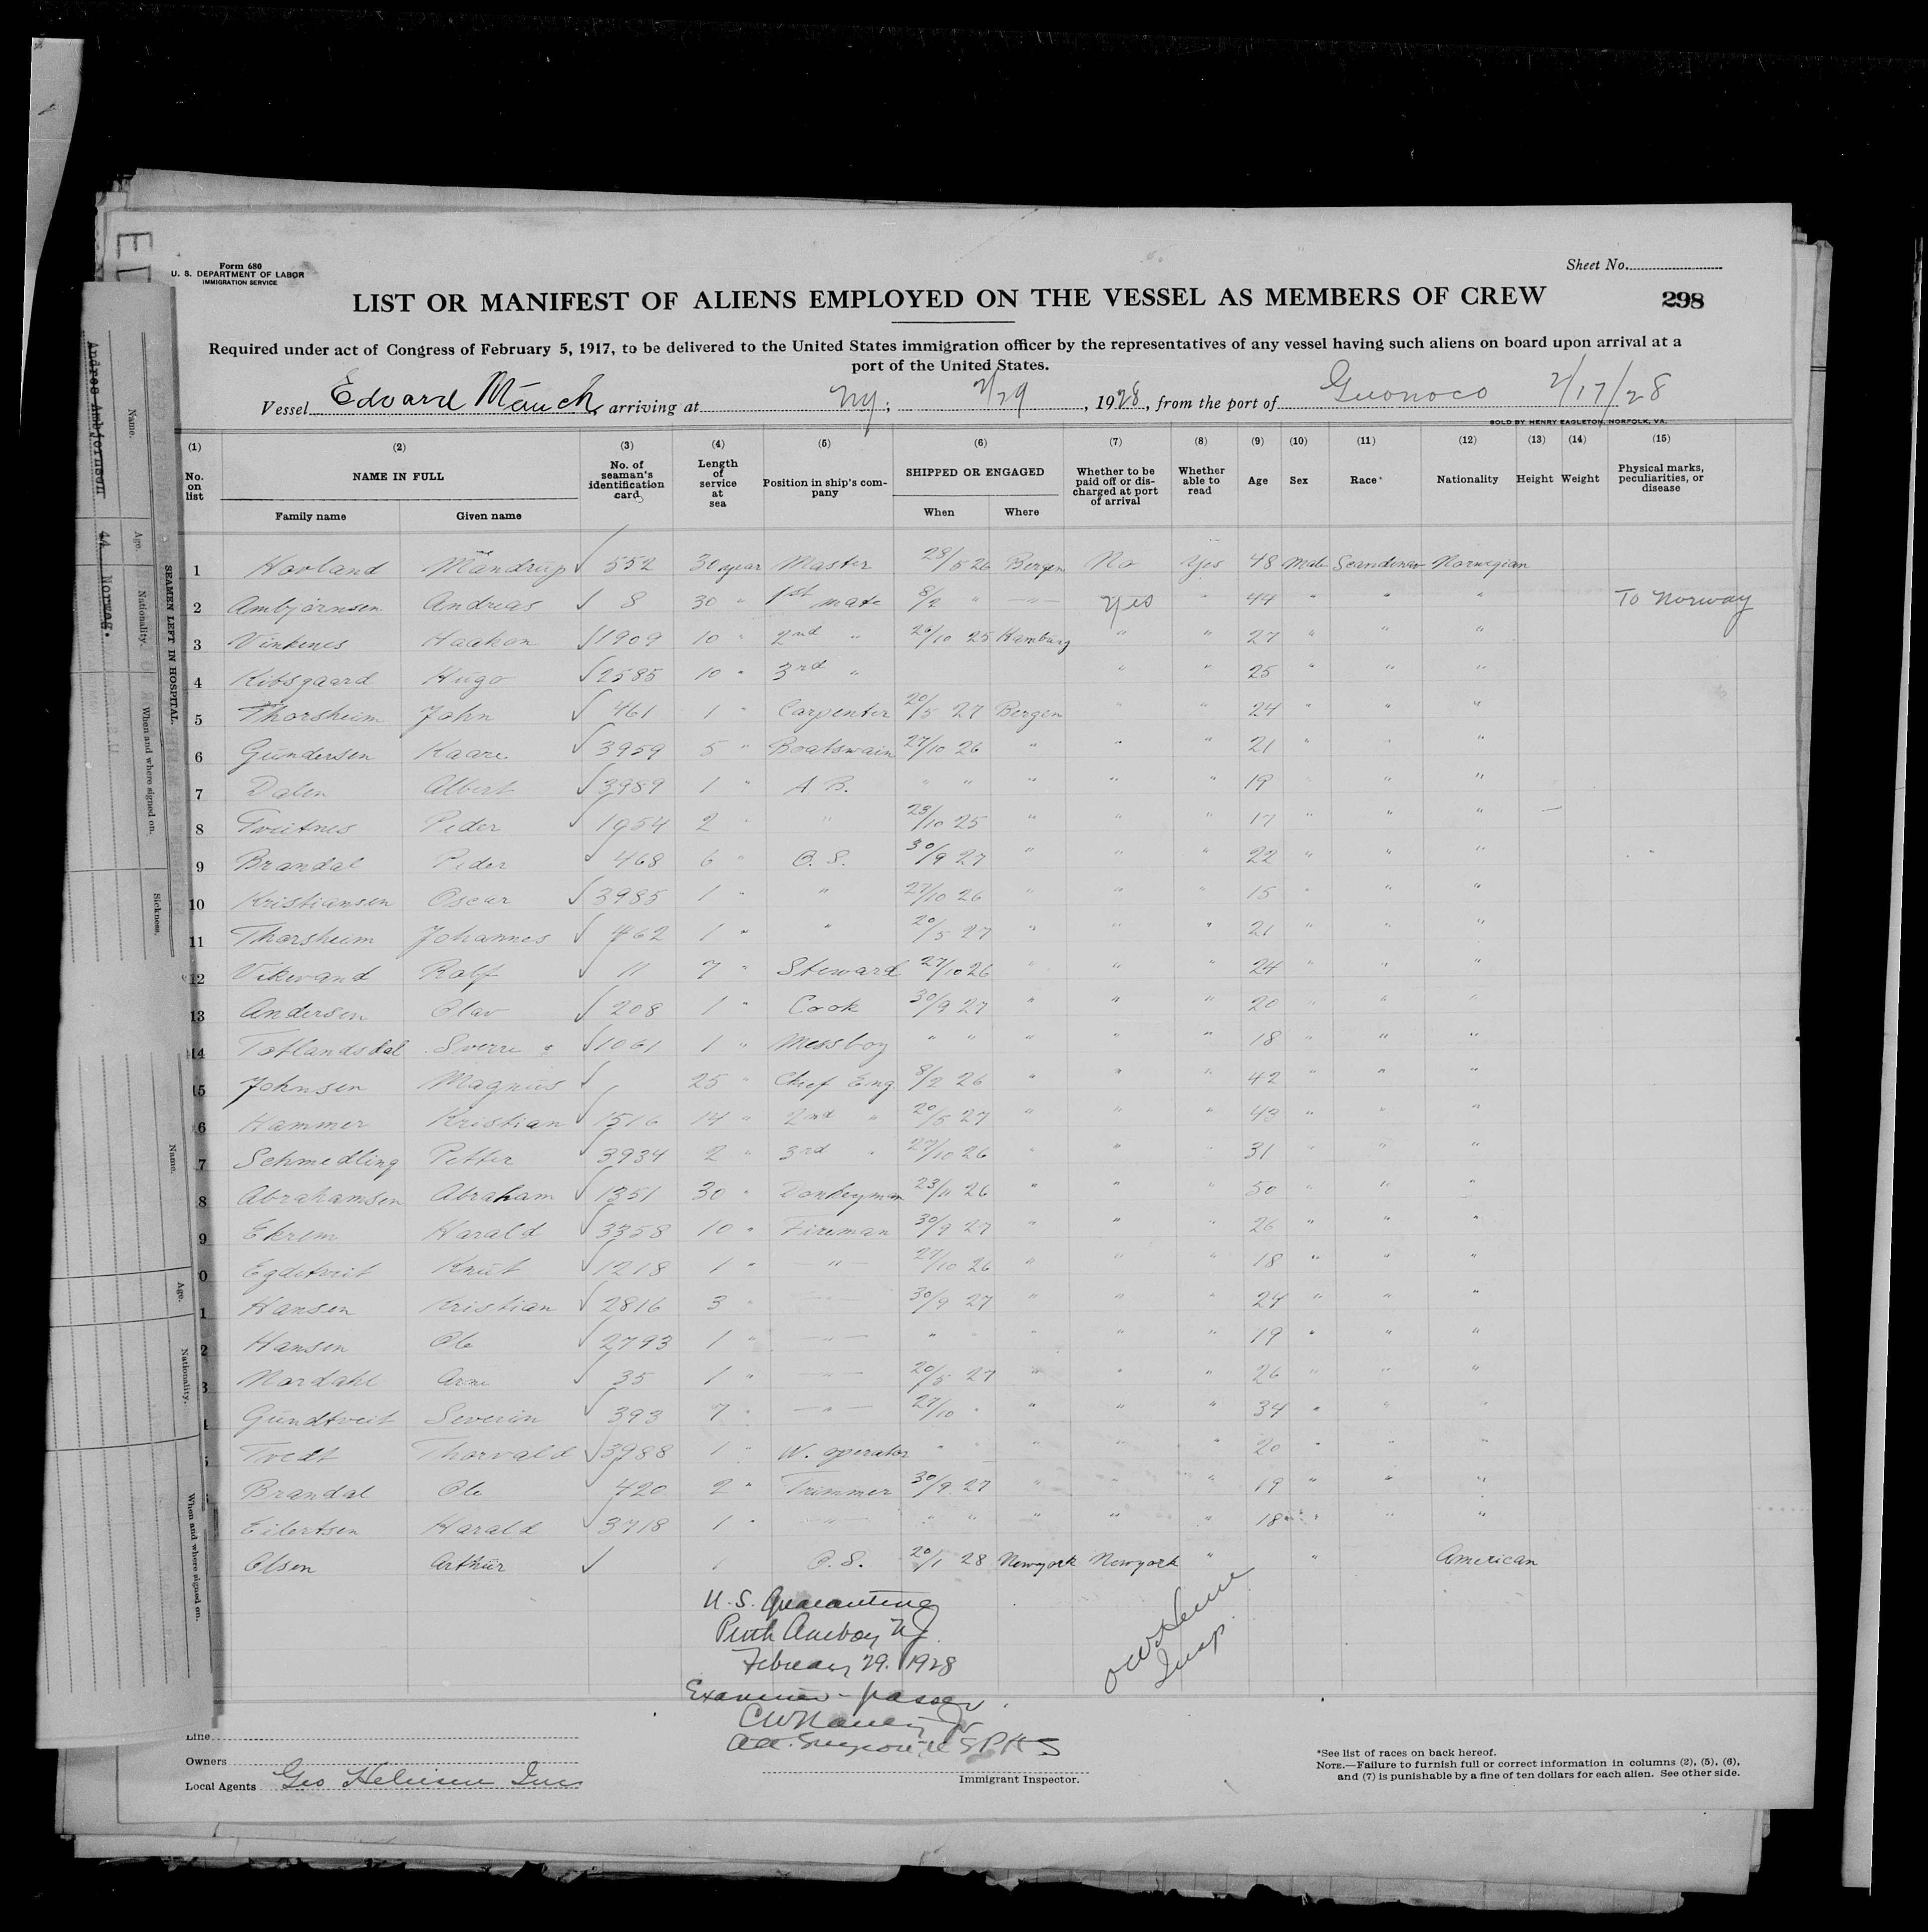 Form 680
U. S. DEPARTMENT OF LABOR
IMMIGRATION SERVICE
Sheet No.
LIST OR MANIFEST OF ALIENS EMPLOYED ON THE VESSEL AS MEMBERS OF CREW
298
Required under act of Congress of February 5, 1917, to be delivered to the United States immigration officer by the representatives of any vessel having such aliens on board upon arrival at a
port of the United States.
Vessel Edvard Munch, arriving at NY; 2/29, 1928, from the port of 2/17/28
SOLD BY HENRY EAGLETON, NORFOLK, VA.
(1) (2) (3) (4) (5) (6) (7) (8) (9) (10) (11) (12) (13) (14) (15)
No. on list NAME IN FULL No. of seaman's identification card Length of service at sea Position in ship's company SHIPPED OR ENGAGED Whether to be paid off or discharged at port of arrival Whether able to read Age Sex Race* Nationality Height Weight Physical marks, peculiarities, or disease
Family name Given name When Where
1 Hovland Mandrup √ 552 30 year Master 28/5 26 Bergen No Yes 48 Male Scandinav Norwegian
2 Ambjørnsen Andreas √ 8 30 " 1st mate 8/2 " —"— Yes " 44 " " " To Norway
3 Haakon √ 1909 10 " 2nd " 26/10 25 Hamburg " " 27 " " "
4 Kibsgaard Hugo √ 2585 10 " 3rd " " " 25 " " "
5 Thorsheim John √ 461 1 " Carpenter 20/5 27 Bergen " " 24 " " "
6 Gundersen Kaare √ 3959 5 " Boatswain 27/10 26 " " " 21 " " "
7 Dalen Albert √ 3989 1 " A. B. " " " " " 19 " "
8 Tveitnes Peder √ 1954 2 " " 23/10 25 " " " 17 " " "
9 Brandal Peder √ 468 6 " O. S. 30/9 27 " " " 22 " " "
10 Kristiansen Oscar √ 3985 1 " " 27/10 26 " " " 15 " " "
11 Thorsheim Johannes √ 462 1 " " 20/5 27 " " " 21 " " "
12 Rolf √ 11 7 " Steward 27/10 26 " " " 24 " " "
13 Andersen Olav √ 208 1 " Cook 30/9 27 " " " 20 " " "
14 Totlandsdal Sverre √ 1061 1 " Messboy " " " " " 18 " " "
5 Johnsen Magnus √ 25 " Chief Eng. 8/2 26 " " " 42 " " "
6 Hammer Kristian √ 1516 14 " 2nd " 20/5 27 " " " 43 " " "
7 Schmedling Petter √ 3934 2 " 3rd " 27/10 26 " " " 31 " " "
8 Abrahamsen Abraham √ 1351 30 " Donkeyman 23/11 26 " " " 50 " " "
9 Ekrem Harald √ 3358 10 " Fireman 30/9 27 " " " 26 " " "
0 Knut √ 1218 1 " —"— 27/10 26 " " " 18 " " "
1 Hansen Kristian √ 2816 3 " —"— 30/9 27 " " " 24 " " "
2 Hansen Ole √ 2793 1 " —"— " " " " 19 " " "
3 Nordahl Arne √ 35 1 " —"— 20/5 27 " " " 26 " " "
Severin √ 393 7 " —"— 27/10 " " " " 34 " " "
Tvedt Thorvald √ 3988 1 " W. operator " " " " " 20 " " "
Brandal Ole √ 420 2 " Trimmer 30/9 27 " " " 19 " " "
Eilertsen Harald √ 3718 1 " —"— " " " " " 18 " " "
Olsen Arthur √ 1 O. S. 20/1 28 Newyork Newyork " " American
U. S. Quarantine
Perth Amboy NJ.
February 29. 1928
Examined - passed
Insp
Line
Owners
Local Agents Geo
Immigrant Inspector.
*See list of races on back hereof.
NOTE.—Failure to furnish full or correct information in columns (2), (5), (6),
and (7) is punishable by a fine of ten dollars for each alien. See other side.
SEAMEN LEFT IN HOSPITAL.
Name. Age. Nationality. When and where signed on. Sickness.
Andres Ambjornson 44 Norweg.
Name. Age. Nationality. When and where signed on.